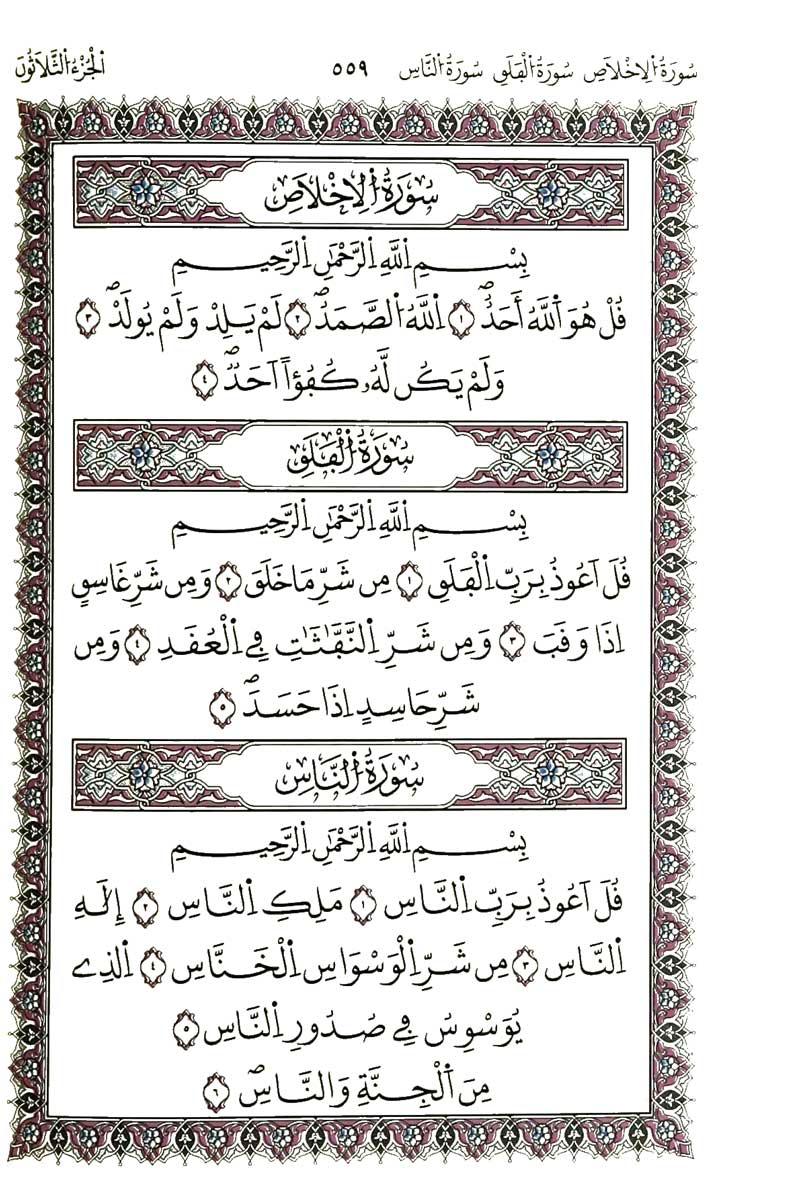 سُورَةُ الِاخْلَاصِ سُورَةُ الْفَلَقِ سُورَةُ النَّاسِ ٥٥٩ الْجُزْءُ الثَّلَاثُونَ
سُورَةُ الِاخْلَاصِ
بِسْمِ اللَّهِ الرَّحْمَٰنِ الرَّحِيمِ
قُلْ هُوَ اَللَّهُ أَحَدٌۖ ١ اَللَّهُ الصَّمَدُۖ ٢ لَمْ يَلِدْ وَلَمْ يُولَدْۖ ٣
وَلَمْ يَكُن لَّهُۥ كُفُؤاً اَحَدٌۖ ٤
سُورَةُ الْفَلَقِ
بِسْمِ اللَّهِ الرَّحْمَٰنِ الرَّحِيمِ
قُلَ اَعُوذُ بِرَبِّ الْفَلَقِ ١ مِن شَرِّ مَا خَلَقَ ٢ وَمِن شَرِّ غَاسِقٍ
اِذَا وَقَبَ ٣ وَمِن شَرِّ النَّفَّٰثَٰتِ فِے الْعُقَدِ ٤ وَمِن
شَرِّ حَاسِدٍ اِذَا حَسَدَۖ ٥
سُورَةُ النَّاسِ
بِسْمِ اللَّهِ الرَّحْمَٰنِ الرَّحِيمِ
قُلَ اَعُوذُ بِرَبِّ النَّاسِ ١ مَلِكِ النَّاسِ ٢ إِلَٰهِ
النَّاسِ ٣ مِن شَرِّ الْوَسْوَاسِ الْخَنَّاسِ ٤ الذِے
يُوَسْوِسُ فِے صُدُورِ النَّاسِ ٥
مِنَ اَلْجِنَّةِ وَالنَّاسِۖ ٦